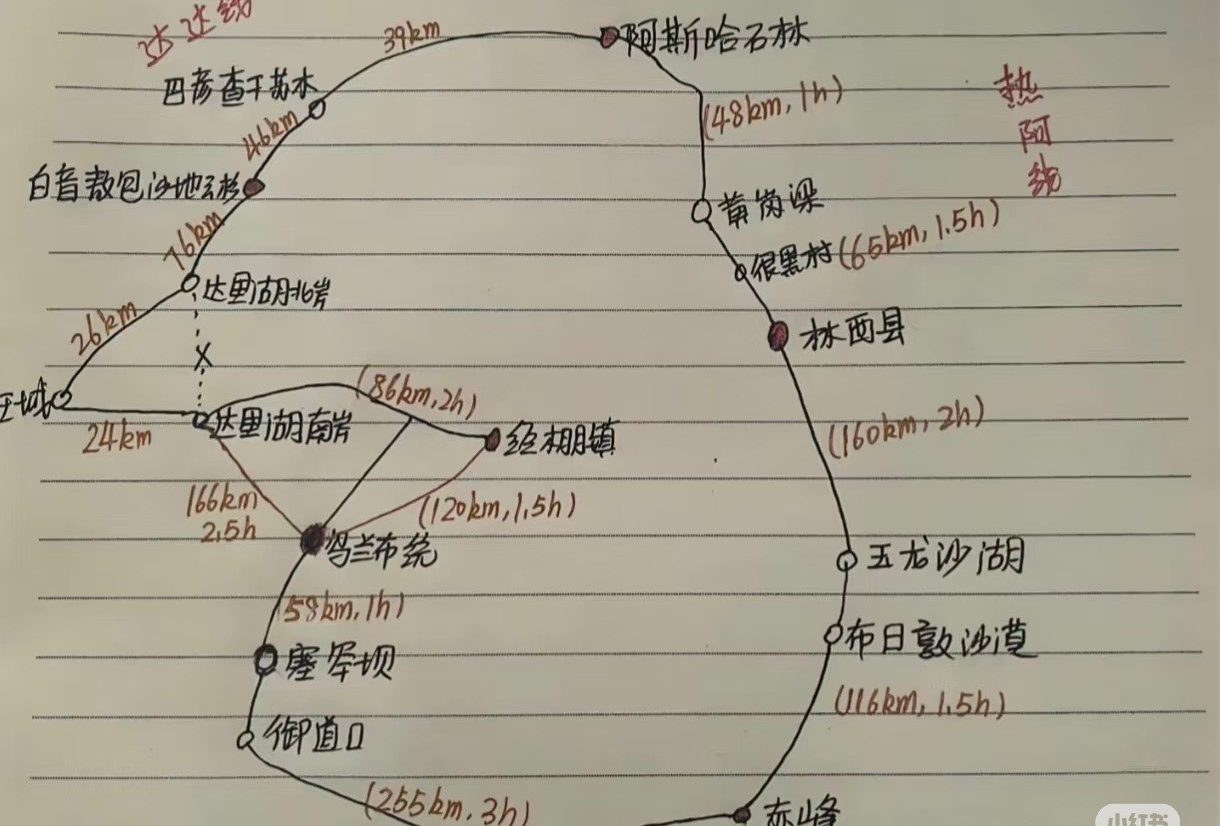 达达线
39km
阿斯哈石林
巴彦查干苏木
(48km, 1h)
热阿线
46km
白音敖包沙地云杉
黄岗梁
76km
很黑村
(65km, 1.5h)
达里湖北岸
26km
林西县
X
(86km, 2h)
王城
24km
达里湖南岸
经棚镇
(160km, 2h)
166km
2.5h
(120km, 1.5h)
乌兰布统
五龙沙湖
(58km, 1h)
塞罕坝
布日敦沙漠
(116km, 1.5h)
御道口
(255km, 3h)
赤峰
小红书